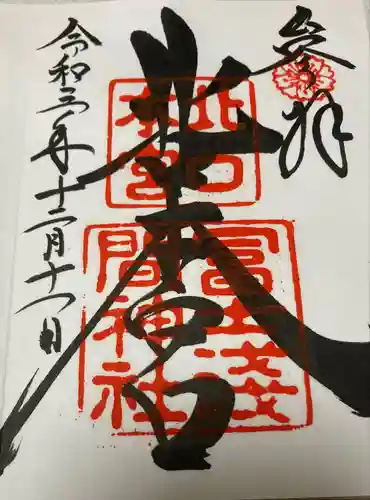 参拝
北口本宮
令和三年十二月十一日
北口
本宮
冨士浅
間神社